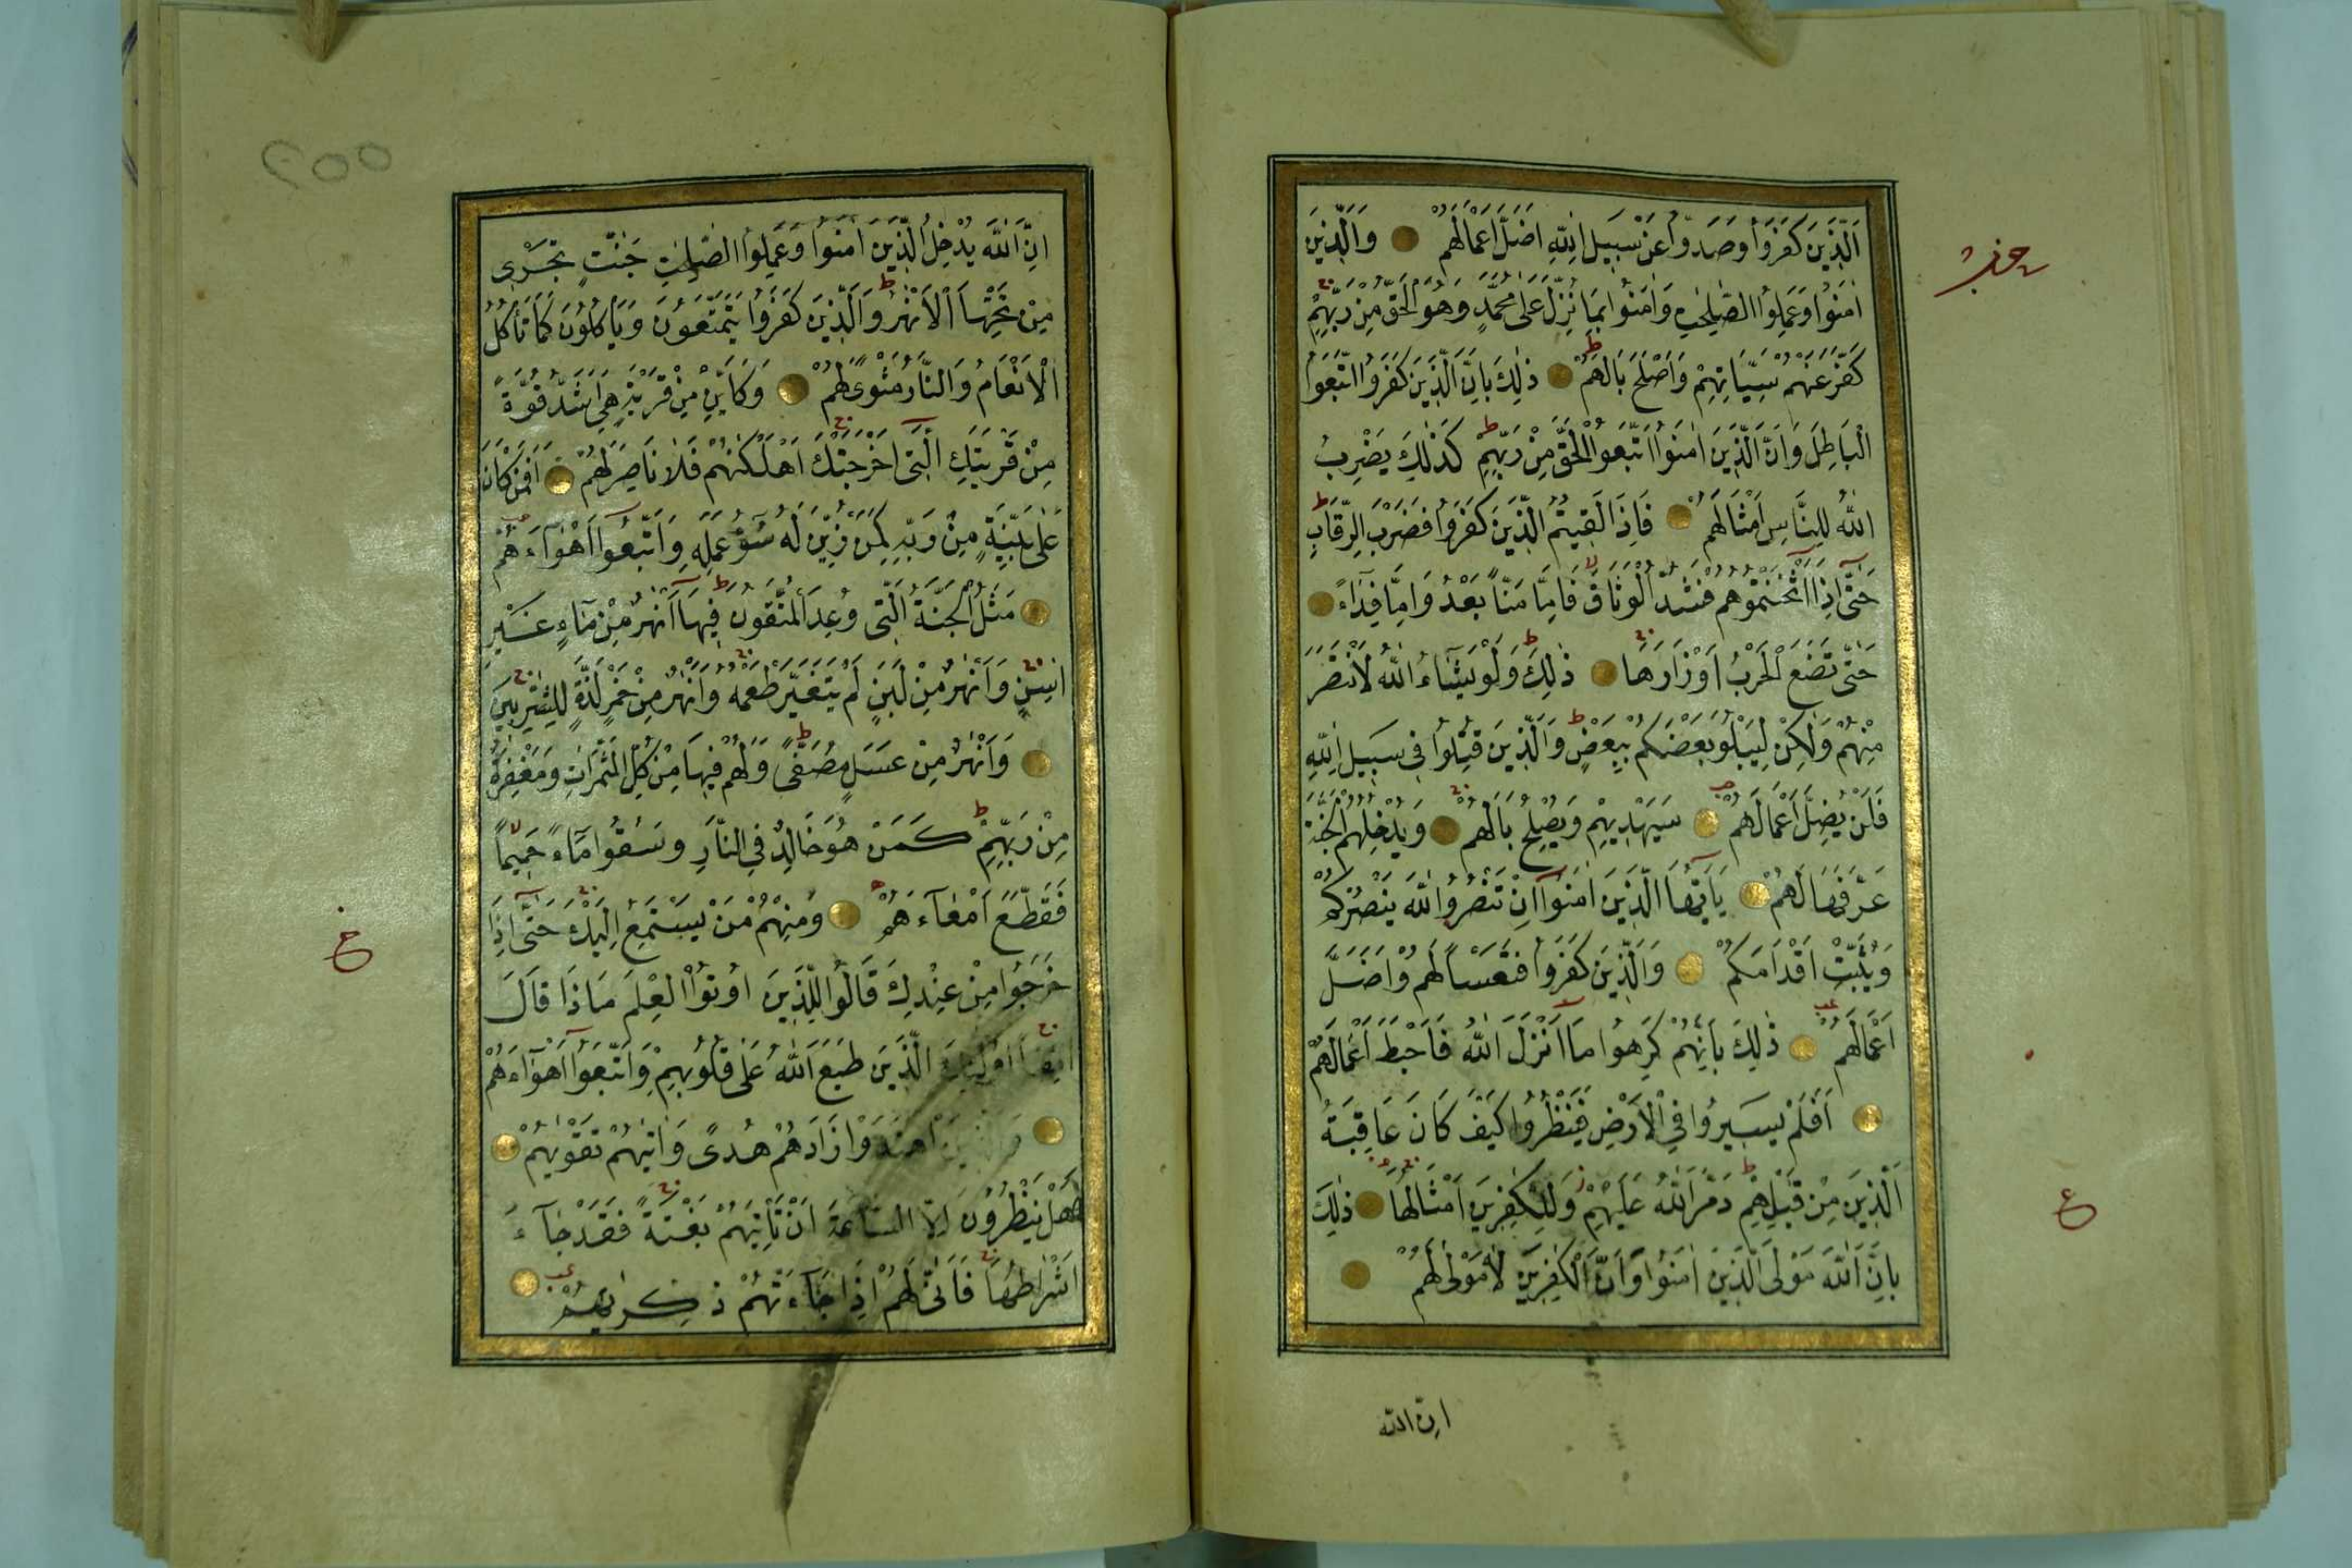 اَلَّذِينَ كَفَرُوا وَصَدُّوا عَنْ سَبِيلِ اللّٰهِ اَضَلَّ اَعْمَالَهُمْ وَالَّذِينَ
اٰمَنُوا وَعَمِلُوا الصَّالِحَاتِ وَاٰمَنُوا بِمَا نُزِّلَ عَلٰى مُحَمَّدٍ وَهُوَ الْحَقُّ مِنْ رَبِّهِمْ
كَفَّرَ عَنْهُمْ سَيِّاٰتِهِمْ وَاَصْلَحَ بَالَهُمْ ذٰلِكَ بِاَنَّ الَّذِينَ كَفَرُوا اتَّبَعُوا
الْبَاطِلَ وَاَنَّ الَّذِينَ اٰمَنُوا اتَّبَعُوا الْحَقَّ مِنْ رَبِّهِمْ كَذٰلِكَ يَضْرِبُ
اللّٰهُ لِلنَّاسِ اَمْثَالَهُمْ فَاِذَا لَقِيتُمُ الَّذِينَ كَفَرُوا فَضَرْبَ الرِّقَابِ
حَتّٰى اِذَا اَثْخَنْتُمُوهُمْ فَشُدُّوا الْوَثَاقَ فَاِمَّا مَنًّا بَعْدُ وَاِمَّا فِدَاءً
حَتّٰى تَضَعَ الْحَرْبُ اَوْزَارَهَا ذٰلِكَ وَلَوْ يَشَاءُ اللّٰهُ لَانْتَصَرَ
مِنْهُمْ وَلٰكِنْ لِيَبْلُوَ بَعْضَكُمْ بِبَعْضٍ وَالَّذِينَ قُتِلُوا فِى سَبِيلِ اللّٰهِ
فَلَنْ يُضِلَّ اَعْمَالَهُمْ سَيَهْدِيهِمْ وَيُصْلِحُ بَالَهُمْ وَيُدْخِلُهُمُ الْجَنَّةَ
عَرَّفَهَا لَهُمْ يَا اَيُّهَا الَّذِينَ اٰمَنُوا اِنْ تَنْصُرُوا اللّٰهَ يَنْصُرْكُمْ
وَيُثَبِّتْ اَقْدَامَكُمْ وَالَّذِينَ كَفَرُوا فَتَعْسًا لَهُمْ وَاَضَلَّ
اَعْمَالَهُمْ ذٰلِكَ بِاَنَّهُمْ كَرِهُوا مَا اَنْزَلَ اللّٰهُ فَاَحْبَطَ اَعْمَالَهُمْ
اَفَلَمْ يَسِيرُوا فِى الْاَرْضِ فَيَنْظُرُوا كَيْفَ كَانَ عَاقِبَةُ
الَّذِينَ مِنْ قَبْلِهِمْ دَمَّرَ اللّٰهُ عَلَيْهِمْ وَلِلْكٰفِرِينَ اَمْثَالُهَا ذٰلِكَ
بِاَنَّ اللّٰهَ مَوْلَى الَّذِينَ اٰمَنُوا وَاَنَّ الْكٰفِرِينَ لَا مَوْلٰى لَهُمْ
ان الله
ع
٢٥٥
اِنَّ اللّٰهَ يُدْخِلُ الَّذِينَ اٰمَنُوا وَعَمِلُوا الصَّالِحَاتِ جَنَّاتٍ تَجْرِى
مِنْ تَحْتِهَا الْاَنْهٰرُ وَالَّذِينَ كَفَرُوا يَتَمَتَّعُونَ وَيَاْكُلُونَ كَمَا تَاْكُلُ
الْاَنْعَامُ وَالنَّارُ مَثْوًى لَهُمْ وَكَاَيِّنْ مِنْ قَرْيَةٍ هِىَ اَشَدُّ قُوَّةً
مِنْ قَرْيَتِكَ الَّتِى اَخْرَجَتْكَ اَهْلَكْنٰهُمْ فَلَا نَاصِرَ لَهُمْ اَفَمَنْ كَانَ
عَلٰى بَيِّنَةٍ مِنْ رَبِّهِ كَمَنْ زُيِّنَ لَهُ سُوءُ عَمَلِهِ وَاتَّبَعُوا اَهْوَاءَهُمْ
مَثَلُ الْجَنَّةِ الَّتِى وُعِدَ الْمُتَّقُونَ فِيهَا اَنْهٰرٌ مِنْ مَاءٍ غَيْرِ
اٰسِنٍ وَاَنْهٰرٌ مِنْ لَبَنٍ لَمْ يَتَغَيَّرْ طَعْمُهُ وَاَنْهٰرٌ مِنْ خَمْرٍ لَذَّةٍ لِلشّٰرِبِينَ
وَاَنْهٰرٌ مِنْ عَسَلٍ مُصَفًّى وَلَهُمْ فِيهَا مِنْ كُلِّ الثَّمَرَاتِ وَمَغْفِرَةٌ
مِنْ رَبِّهِمْ كَمَنْ هُوَ خَالِدٌ فِى النَّارِ وَسُقُوا مَاءً حَمِيمًا
فَقَطَّعَ اَمْعَاءَهُمْ وَمِنْهُمْ مَنْ يَسْتَمِعُ اِلَيْكَ حَتّٰى اِذَا
خَرَجُوا مِنْ عِنْدِكَ قَالُوا لِلَّذِينَ اُوتُوا الْعِلْمَ مَاذَا قَالَ
اٰنِفًا اُولٰئِكَ الَّذِينَ طَبَعَ اللّٰهُ عَلٰى قُلُوبِهِمْ وَاتَّبَعُوا اَهْوَاءَهُمْ
وَالَّذِينَ اهْتَدَوْا زَادَهُمْ هُدًى وَاٰتٰيهُمْ تَقْوٰيهُمْ
فَهَلْ يَنْظُرُونَ اِلَّا السَّاعَةَ اَنْ تَاْتِيَهُمْ بَغْتَةً فَقَدْ جَاءَ
اَشْرَاطُهَا فَاَنّٰى لَهُمْ اِذَا جَاءَتْهُمْ ذِكْرٰيهُمْ